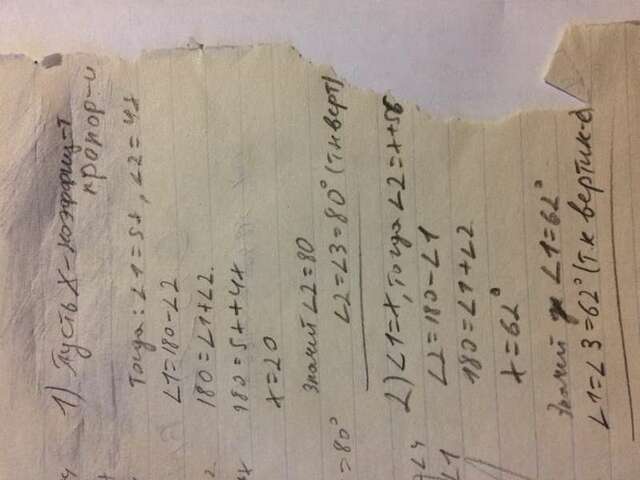 1) Пусть X - коэффиц-т
пропор-и
Тогда: ∠1=5x, ∠2=4x
∠1=180-∠2
180=∠1+∠2
180=5x+4x
x=20
Значит ∠2=80
∠2=∠3=80° (т.к верт)
2) ∠1=x, Тогда ∠2=x+56
∠2=180-∠1
180=∠1+∠2
x=62°
Значит ∠1=62°
∠1=∠3=62° (т.к вертик-е)
=80°
∠1